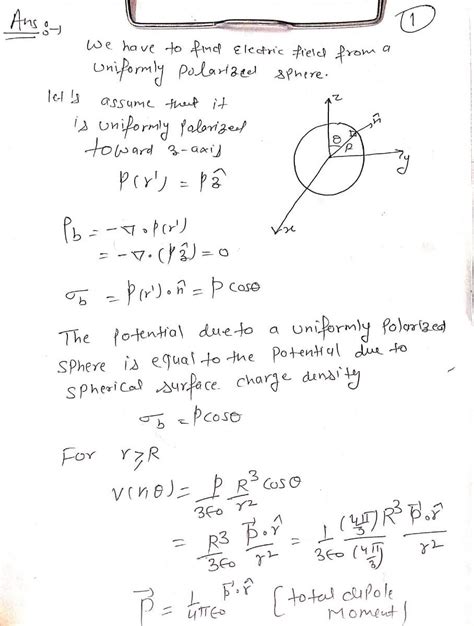 Ans :→
①
We have to find Electric field from a
uniformly polarized sphere.
let's assume that it
is uniformly polarized
toward z-axis
P(r') = Pẑ
z
n̂
θ
R
y
x
ρb = -∇·P(r')
= -∇·(Pẑ) = 0
σb = P(r')·n̂ = P cosθ
The potential due to a uniformly polarized
sphere is equal to the potential due to
spherical surface charge density
σb = P cosθ
For r ≥ R
V(r,θ) = P/3ε0 R³/r² cosθ
= R³/3ε0 P⃗·r̂/r² = 1/3ε0 (4π/3)R³/(4π/3) P⃗·r̂/r²
P⃗ = 1/4πε0 P⃗·r̂ [total dipole
Moment]